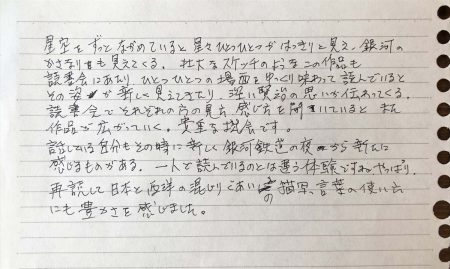 星空をずっとながめていると星々ひとつひとつがはっきりと見え、銀河の
かさなりも見えてくる。壮大なスケッチのようなこの作品も
読書会にあたり、ひとつひとつの場面をゆっくり味わって読んでいると
その姿が新しく見えてきたり、深い賢治の思いが伝わってくる。
読書会でそれぞれの方の見方、感じ方を聞いていると また
作品が広がっていく。貴重な機会です。
読んでいる自分もその時に新しく銀河鉄道の夜から新たに
感じるものがある。一人で読んでいるのとは違う体験ですね、やっぱり。
再読して日本と西洋の混じりぐあいの描写、言葉の使い方
にも豊かさを感じました。